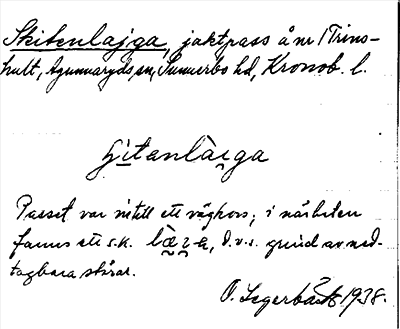 Skitenlajga, jaktpass å nr 1 Trins-
hult, Agunnaryds sn, Sunnerbo hd, Kronob. l.
ʃitanlàiga
Passet var intill ett vägkors; i närheten
fanns ett s.k. , d.v.s. grind av ned-
tagbara störar.
O. Segerbäck 1938.